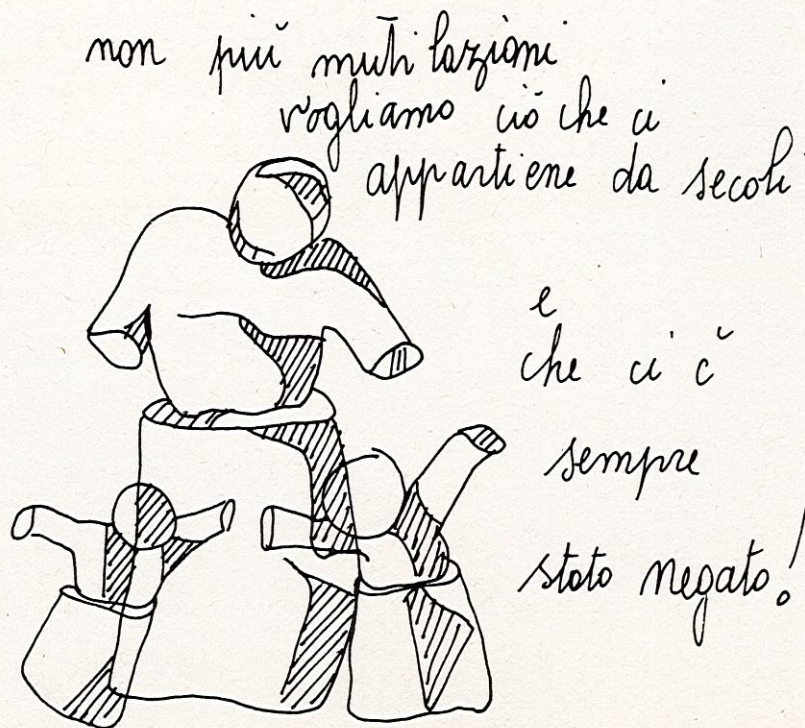 non più mutilazioni
vogliamo ciò che ci
appartiene da secoli
e
che ci è
sempre
stato negato!